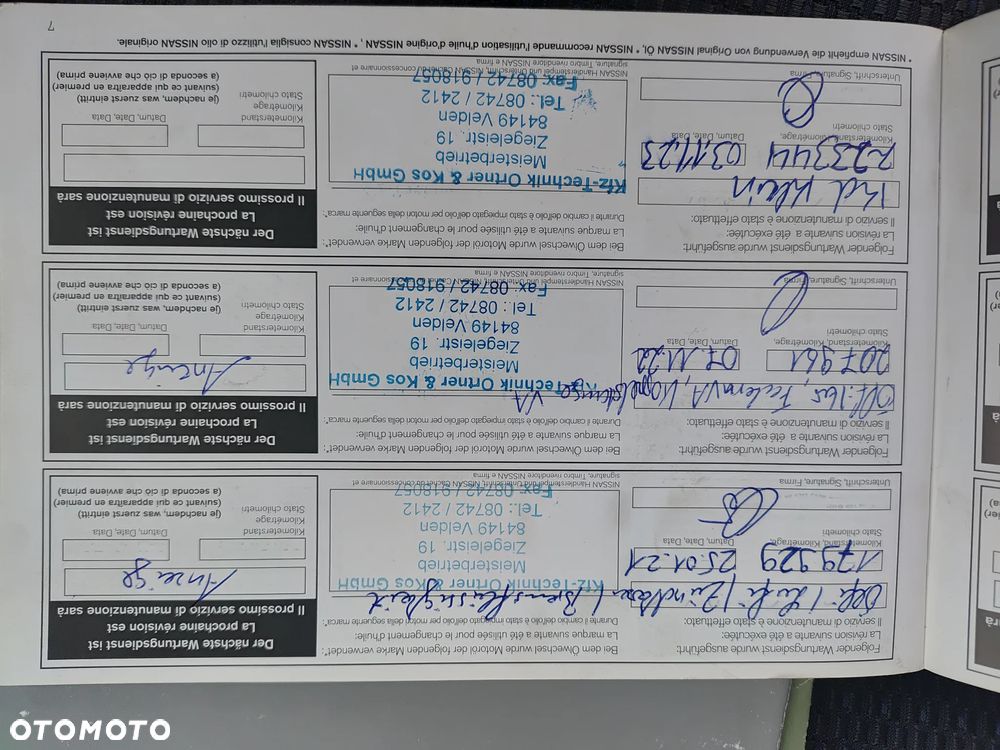 Folgender Wartungsdienst wurde ausgeführt:
La révision suivante a été exécutée:
Il servizio di manutenzione è stato effettuato:
Ölfi / Lufi / Zündkerzen / Bremsflüssigkeit
Kilometerstand, Kilométrage,
Stato chilometri
Datum, Date, Data
179929
25.01.21
Unterschrift, Signature, Firma
Bei dem Ölwechsel wurde Motoröl der folgenden Marke verwendet*:
La marque suivante a été utilisée pour le changement d'huile:
Durante il cambio dell'olio è stato impiegato dell'olio per motori della seguente marca*:
Kfz-Technik Ortner & Kos GmbH
Meisterbetrieb
Ziegeleistr. 19
84149 Velden
Tel.: 08742 / 2412
Fax: 08742 / 918057
NISSAN Händlerstempel und Unterschrift, NISSAN Cachet du concessionnaire et
signature, Timbro rivenditore NISSAN e firma
Der nächste Wartungsdienst ist
La prochaine révision est
Il prossimo servizio di manutenzione sarà
Anzeige
Kilometerstand
Kilométrage
Stato chilometri
Datum, Date, Data
(je nachdem, was zuerst eintritt)
(suivant ce qui apparaîtra en premier)
(a seconda di ciò che avviene prima)
Folgender Wartungsdienst wurde ausgeführt:
La révision suivante a été exécutée:
Il servizio di manutenzione è stato effettuato:
Federn VA, Koppelstange VA
Kilometerstand, Kilométrage,
Stato chilometri
Datum, Date, Data
207961
07.11.22
Unterschrift, Signature, Firma
Bei dem Ölwechsel wurde Motoröl der folgenden Marke verwendet*:
La marque suivante a été utilisée pour le changement d'huile:
Durante il cambio dell'olio è stato impiegato dell'olio per motori della seguente marca*:
Kfz-Technik Ortner & Kos GmbH
Meisterbetrieb
Ziegeleistr. 19
84149 Velden
Tel.: 08742 / 2412
Fax: 08742 / 918057
NISSAN Händlerstempel und Unterschrift, NISSAN Cachet du concessionnaire et
signature, Timbro rivenditore NISSAN e firma
Der nächste Wartungsdienst ist
La prochaine révision est
Il prossimo servizio di manutenzione sarà
Anzeige
Kilometerstand
Kilométrage
Stato chilometri
Datum, Date, Data
(je nachdem, was zuerst eintritt)
(suivant ce qui apparaîtra en premier)
(a seconda di ciò che avviene prima)
Folgender Wartungsdienst wurde ausgeführt:
La révision suivante a été exécutée:
Il servizio di manutenzione è stato effettuato:
Kd Klein
Kilometerstand, Kilométrage,
Stato chilometri
Datum, Date, Data
223344
03.11.23
Unterschrift, Signature, Firma
Bei dem Ölwechsel wurde Motoröl der folgenden Marke verwendet*:
La marque suivante a été utilisée pour le changement d'huile:
Durante il cambio dell'olio è stato impiegato dell'olio per motori della seguente marca*:
Kfz-Technik Ortner & Kos GmbH
Meisterbetrieb
Ziegeleistr. 19
84149 Velden
Tel.: 08742 / 2412
Fax: 08742 / 918057
NISSAN Händlerstempel und Unterschrift, NISSAN Cachet du concessionnaire et
signature, Timbro rivenditore NISSAN e firma
Der nächste Wartungsdienst ist
La prochaine révision est
Il prossimo servizio di manutenzione sarà
Kilometerstand
Kilométrage
Stato chilometri
Datum, Date, Data
(je nachdem, was zuerst eintritt)
(suivant ce qui apparaîtra en premier)
(a seconda di ciò che avviene prima)
* NISSAN empfiehlt die Verwendung von Original NISSAN ÖL, * NISSAN recommande l'utilisation d'huile d'origine NISSAN , * NISSAN consiglia l'utilizzo di olio NISSAN originale.
7
OTOMOTO